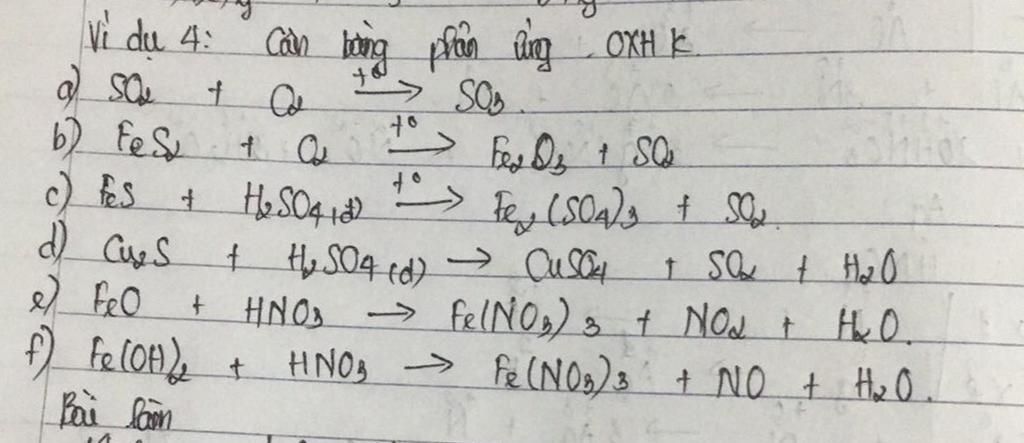 Ví dụ 4: Cân bằng phản ứng OXHK.
a) SO2 + O2 t° → SO3.
b) FeS2 + O2 t° → Fe2O3 + SO2
c) FeS + H2SO4(đ) t° → Fe2(SO4)3 + SO2.
d) Cu2S + H2SO4(đ) → CuSO4 + SO2 + H2O
e) FeO + HNO3 → Fe(NO3)3 + NO2 + H2O.
f) Fe(OH)2 + HNO3 → Fe(NO3)3 + NO + H2O.
Bài làm